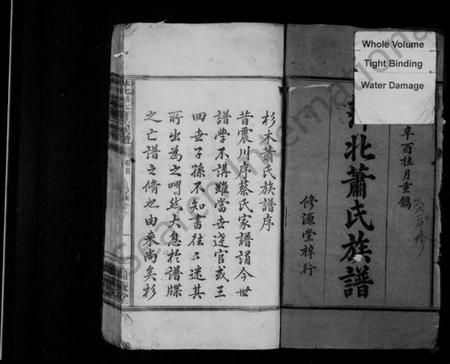 Whole Volume
Tight Binding
Water Damage
辛酉桂月重鐫
北蕭氏族譜
修源堂梓行
杉木蕭氏族譜序
昔震川序蔡氏家譜謂今世
譜學不講雖當世達官或三
四世子孫不知書往往迷其
所出為之喟然大息於譜牒
之亡譜之脩也由來尚矣杉